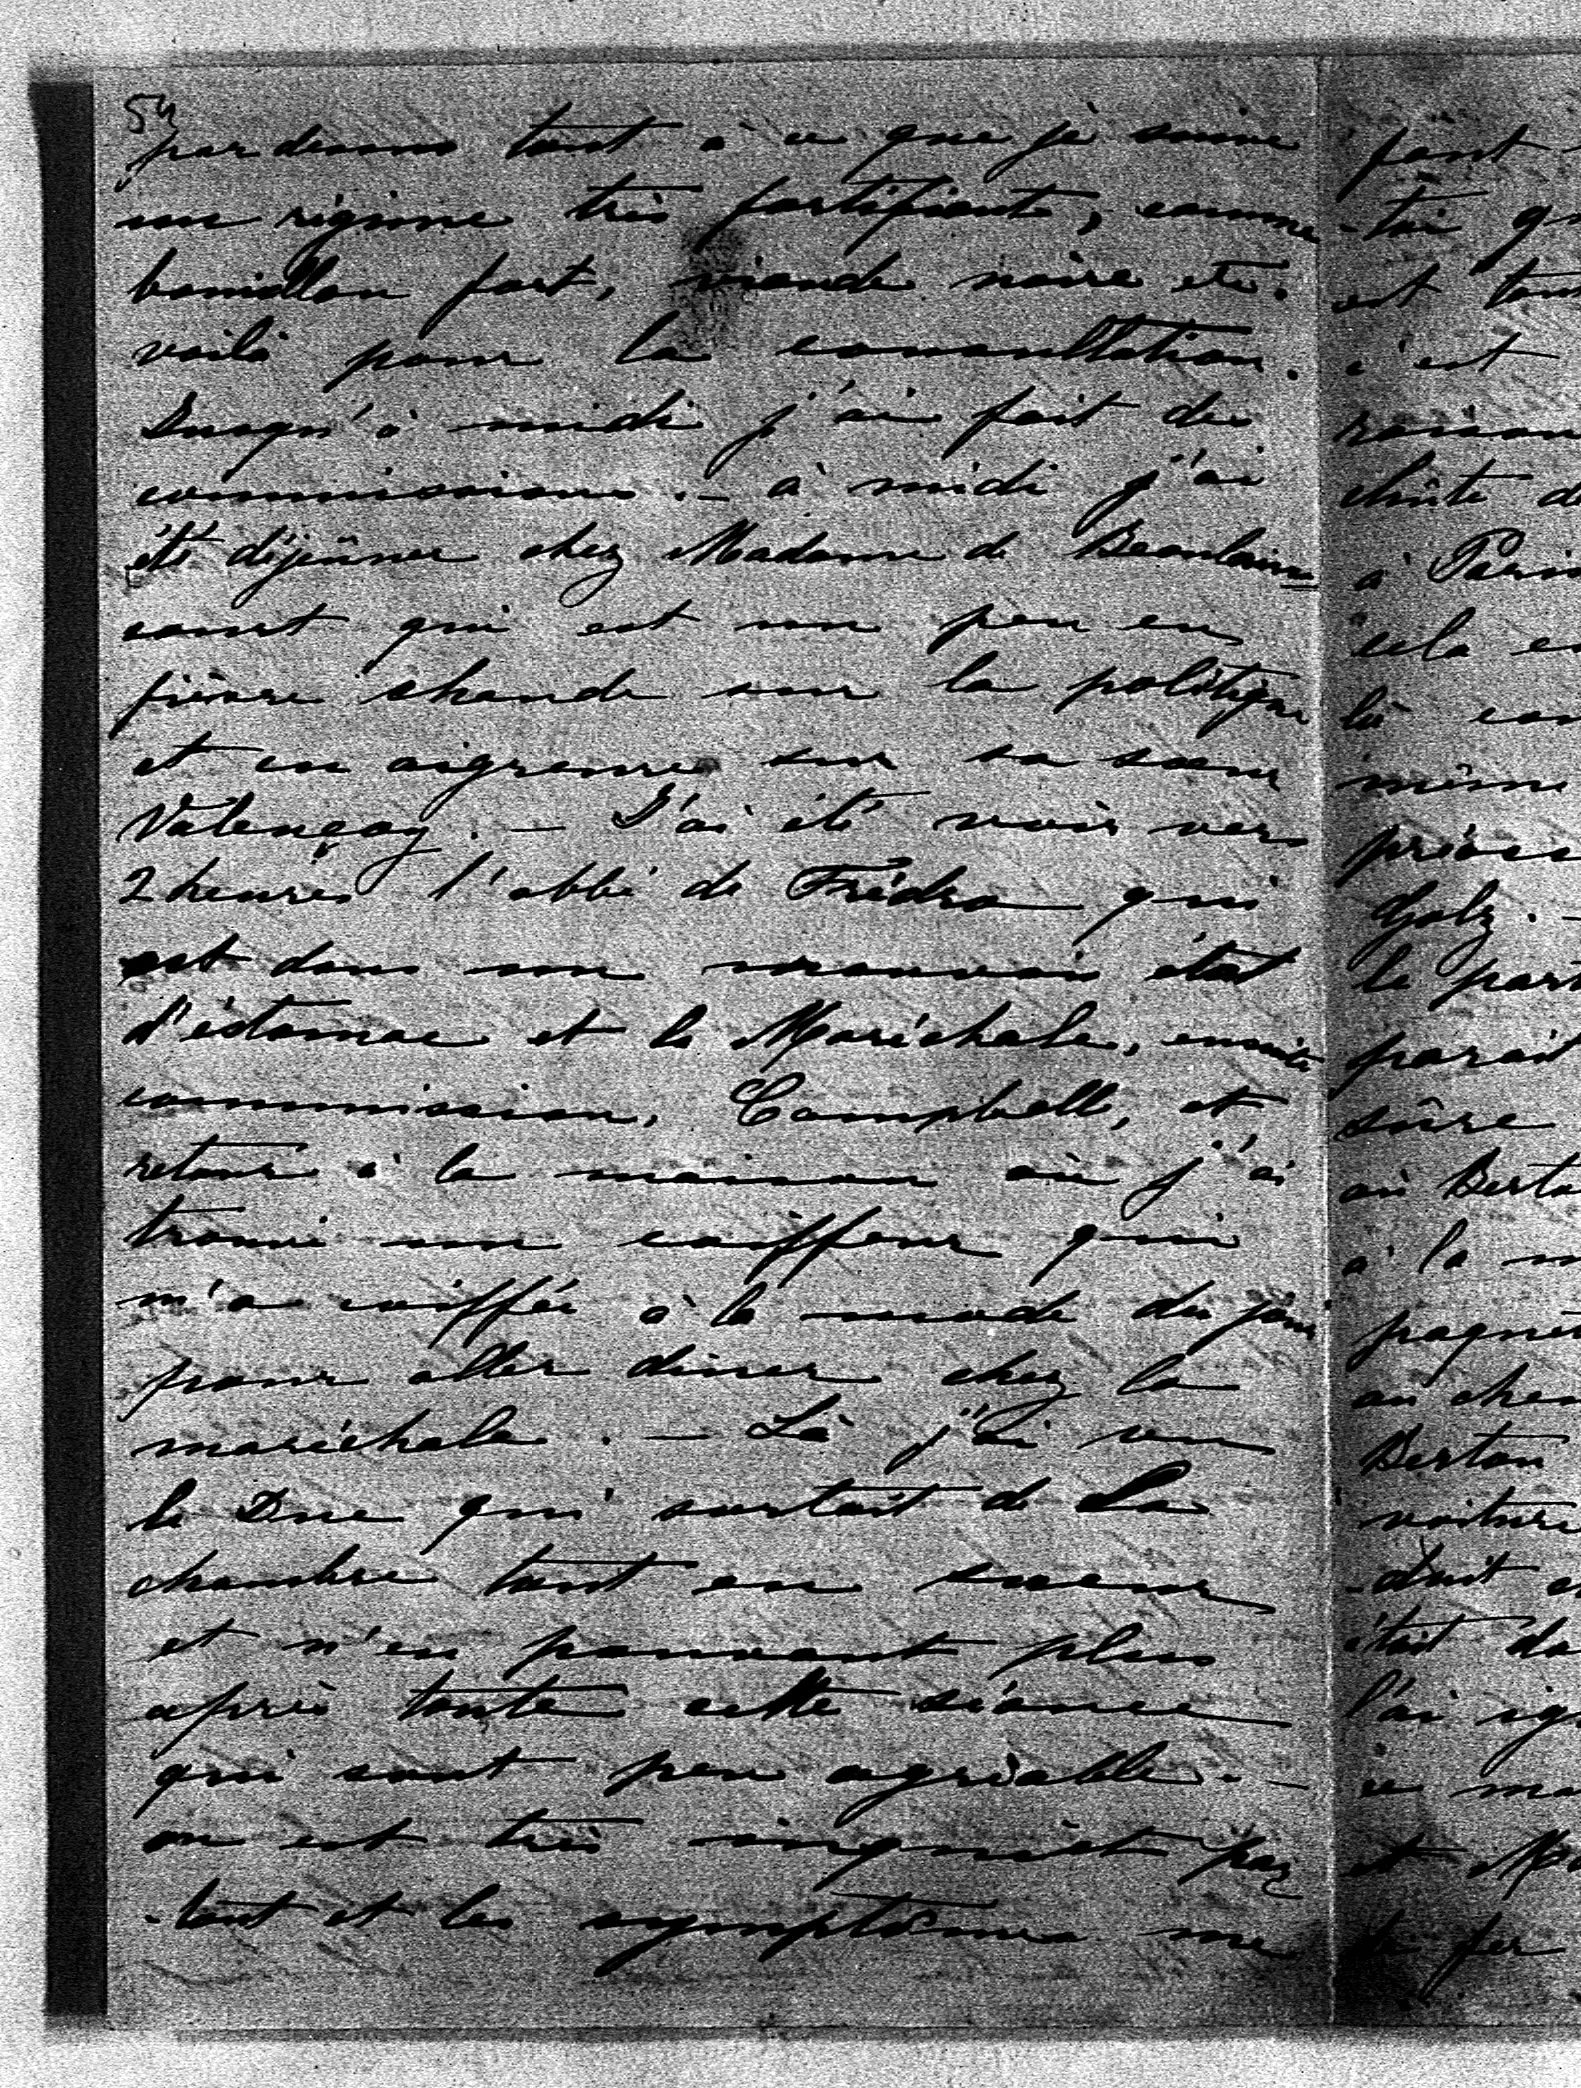 54
par dessus tout à ce que je suive
un régime très fortifiant, comme
bouillon fort, viande noire etc.
voilà pour la consultation.
Jusqu'à midi j'ai fait des
commissions. — à midi j'ai
été déjeûner chez Madame de Beaulain=
court qui est un peu en
fièvre chaude sur la politique
et en aigreur sur sa sœur
Valençay. — J'ai été voir vers
2 heures l'abbé de Frédro qui
est dans un mauvais état
d'estomac et la Maréchale, ensuite
commission, Campbell, et
retour à la maison où j'ai
trouvé un coiffeur qui
m'a coiffée à la mode du jour
pour aller diner chez la
maréchale. — Là j'ai vu
le Duc qui sortait de la
chambre tout en sueur
et n'en pouvant plus
après toute cette séance
qui sont peu agréable. —
on est très inquiet par
-tout et les symptômes me
font
-toi
est
c'est
chûte
à Paris
cela
là
même
le
sûre
où
à la
Berton
voiture
-dait
était
l'ai
ce
et
de fer